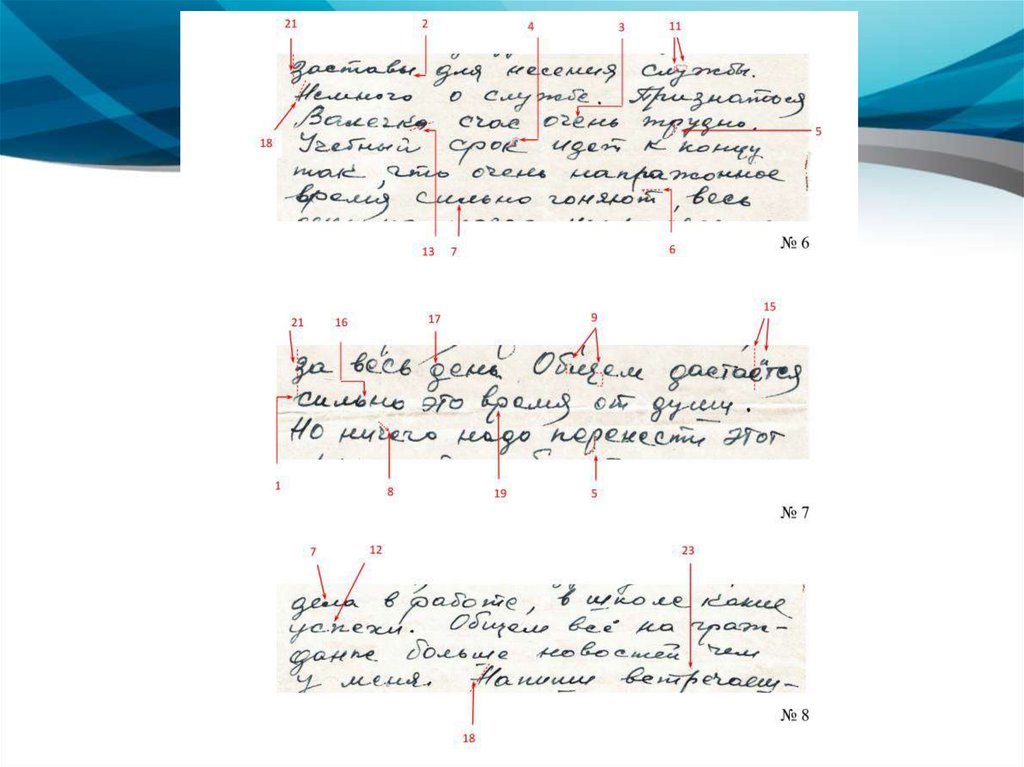 21 2 4 3 11
заставы для несения службы.
Немного о службе. Признаться
18 Валечка счас очень трудно. 5
Учебный срок идет к концу
так, что очень напражонное
время сильно гоняют, весь
13 7 6
№ 6
21 16 17 9 15
за весь день. Общем дастаётся
сильно это время от души.
Но ничего надо перенести этот
1 8 19 5
№ 7
7 12 23
дела в работе, в школе какие
успехи. Общем всё на граж-
данке больше новостей чем
у меня. Напиши встречаеш-
№ 8
18